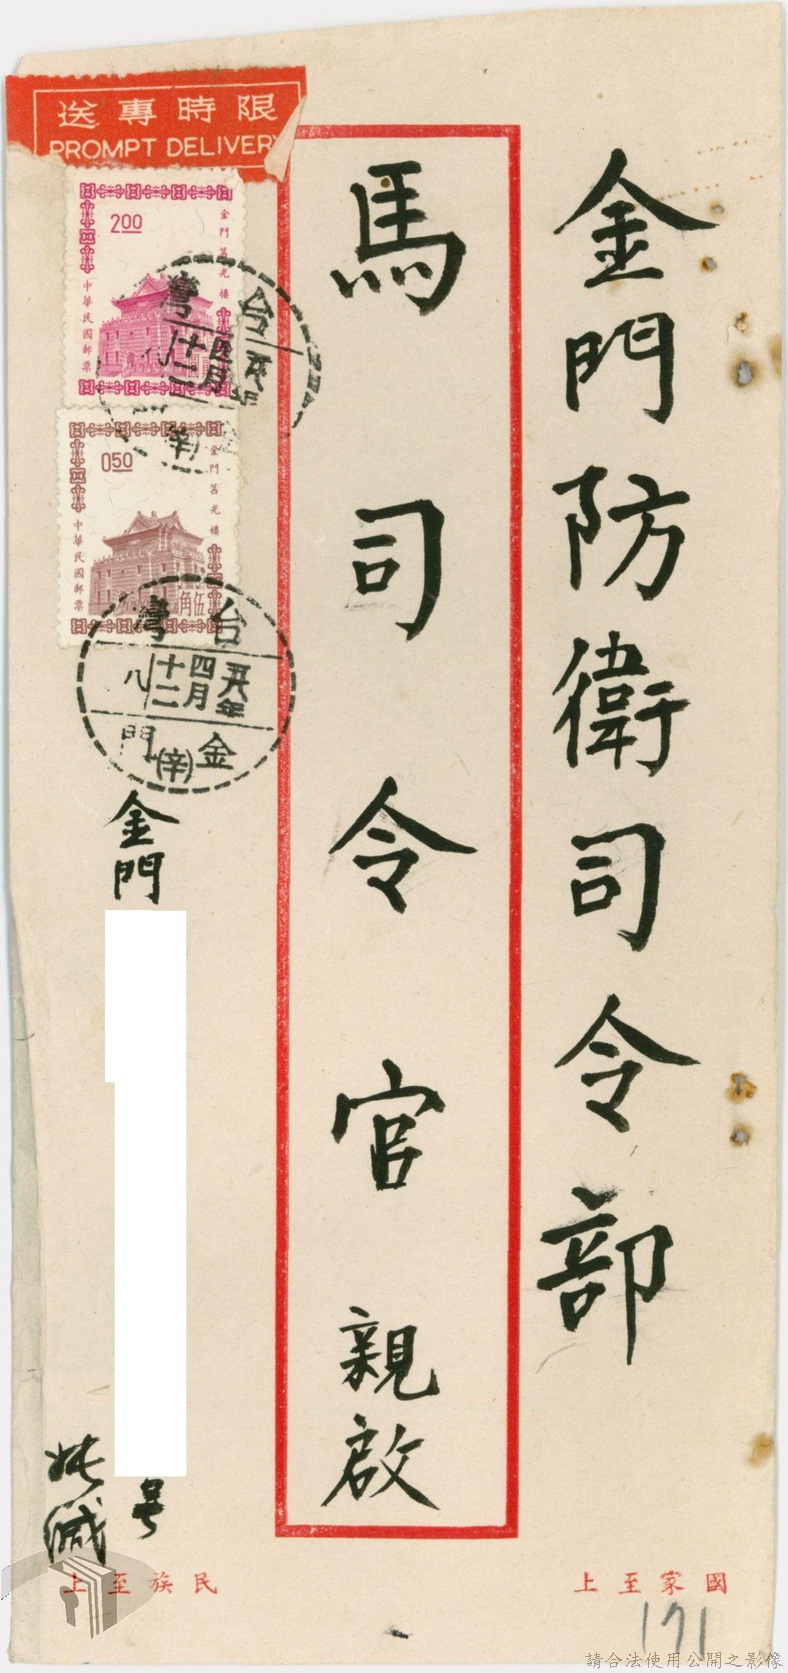 金門防衛司令部
馬司令官 親啟
限時專送
PROMPT DELIVERY
2.00
金門莒光樓
中華民國郵票
0.50
金門莒光樓
中華民國郵票
伍角
台灣
四月
十二
(辛)
台灣
五八年
四月
十二
八
金門
(辛)
金門
号
緘
國家至上
民族至上
171
請合法使用公開之影像